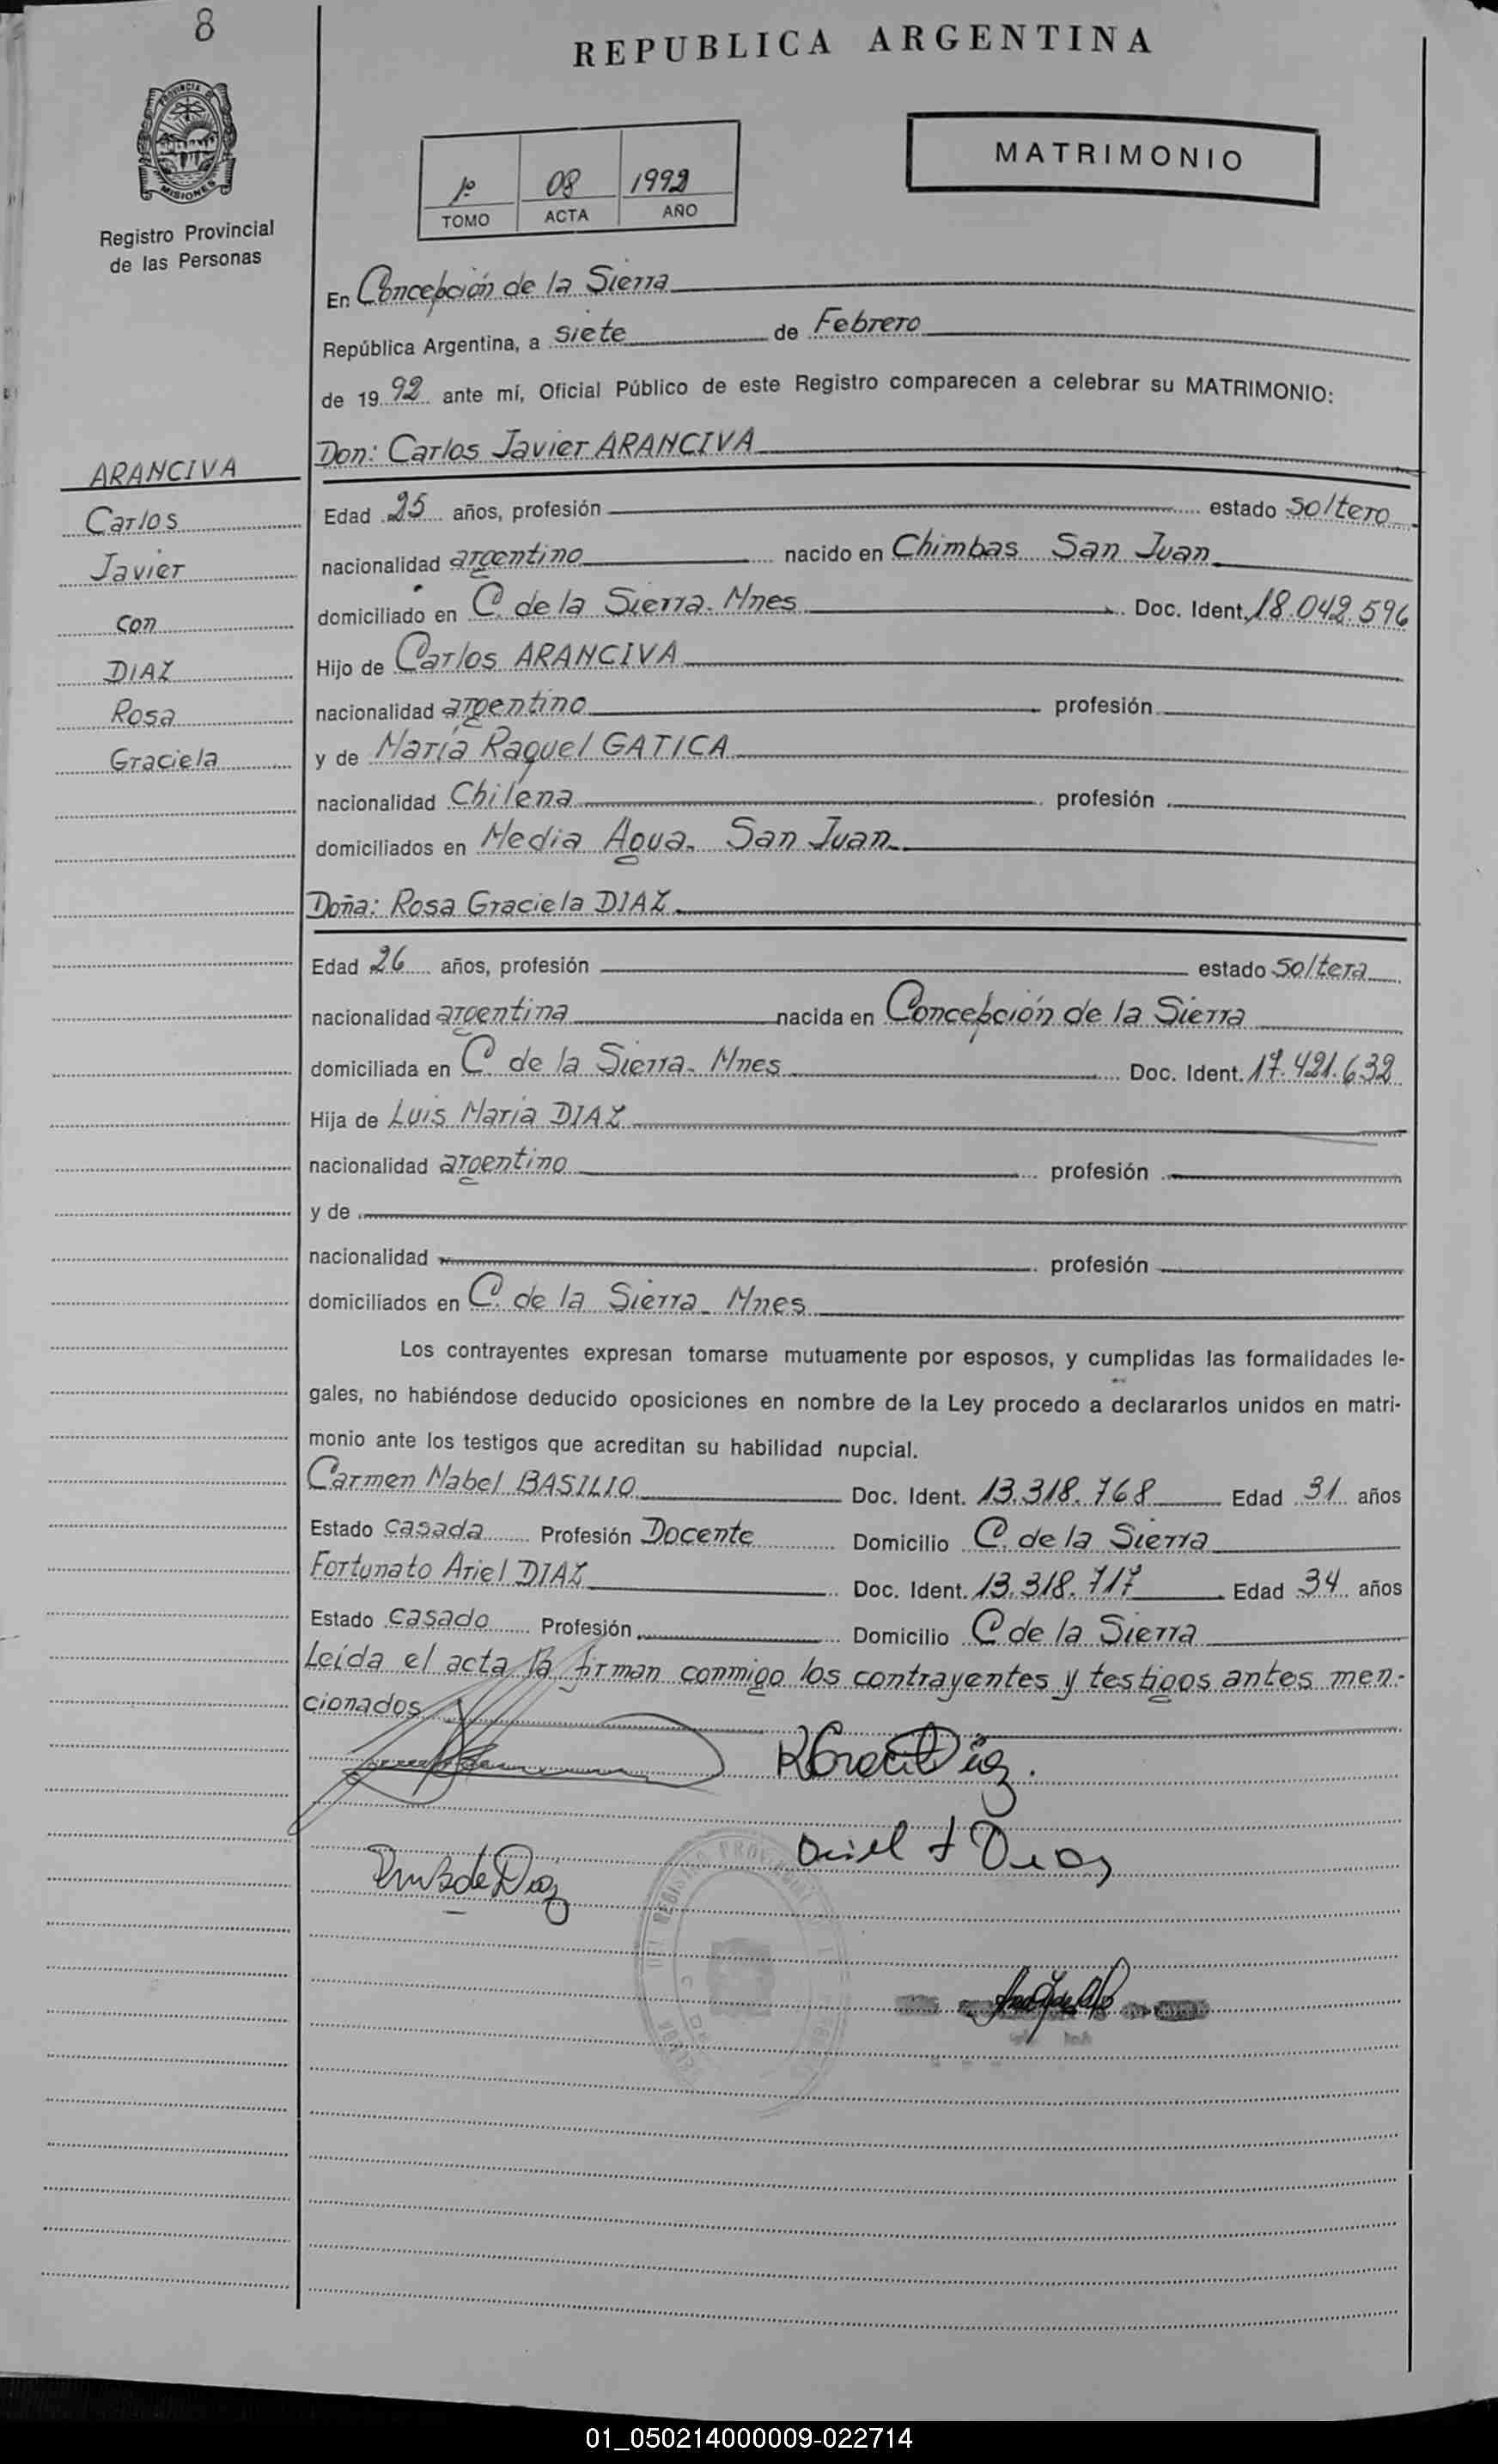 8
REPUBLICA ARGENTINA
PROVINCIA DE
MISIONES
Registro Provincial
de las Personas
1º 08 1992
TOMO ACTA AÑO
MATRIMONIO
En Concepción de la Sierra
República Argentina, a siete de Febrero
de 19 92 ante mí, Oficial Público de este Registro comparecen a celebrar su MATRIMONIO:
ARANCIVA
Carlos
Javier
con
DIAZ
Rosa
Graciela
Don: Carlos Javier ARANCIVA
Edad 25 años, profesión estado soltero
nacionalidad argentino nacido en Chimbas San Juan
domiciliado en C. de la Sierra. Mnes Doc. Ident. 18.042.596
Hijo de Carlos ARANCIVA
nacionalidad argentino profesión
y de María Raquel GATICA
nacionalidad Chilena profesión
domiciliados en Media Agua. San Juan
Doña: Rosa Graciela DIAZ
Edad 26 años, profesión estado soltera
nacionalidad argentina nacida en Concepción de la Sierra
domiciliada en C. de la Sierra. Mnes Doc. Ident. 17.421.632
Hija de Luis María DIAZ
nacionalidad argentino profesión
y de
nacionalidad profesión
domiciliados en C. de la Sierra. Mnes
Los contrayentes expresan tomarse mutuamente por esposos, y cumplidas las formalidades le-
gales, no habiéndose deducido oposiciones en nombre de la Ley procedo a declararlos unidos en matri-
monio ante los testigos que acreditan su habilidad nupcial.
Carmen Mabel BASILIO Doc. Ident. 13.318.768 Edad 31 años
Estado casada Profesión Docente Domicilio C. de la Sierra
Fortunato Ariel DIAZ Doc. Ident. 13.318.717 Edad 34 años
Estado casado Profesión Domicilio C de la Sierra
Leída el acta la firman conmigo los contrayentes y testigos antes men-
cionados
01_050214000009-022714